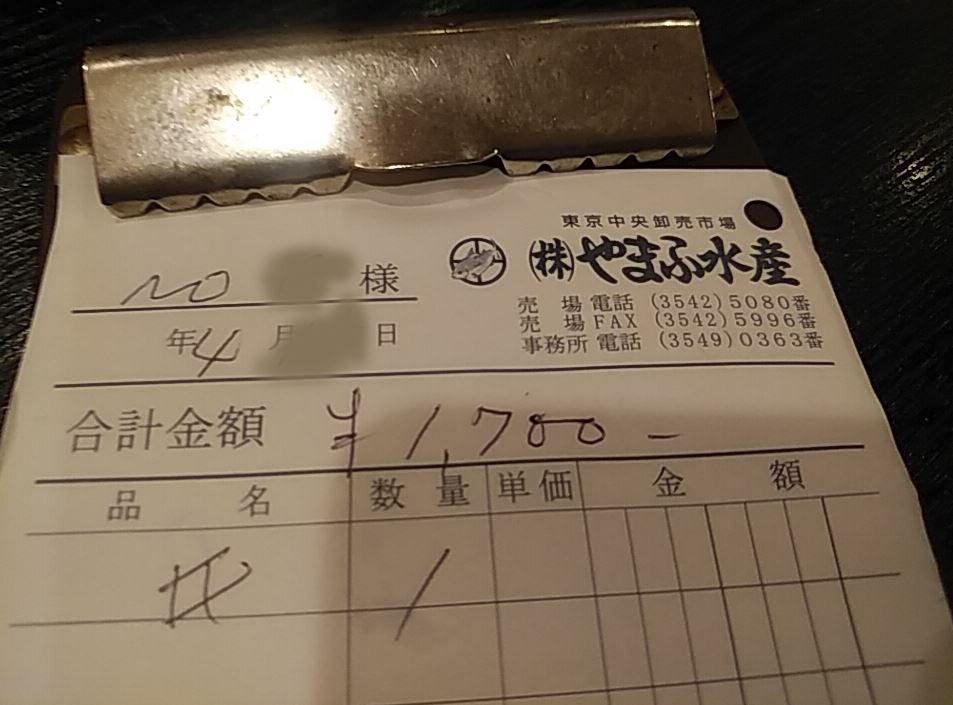 東京中央卸売市場
㈱やまふ水産
売場電話 (3542)5080番
売場FAX (3542)5996番
事務所電話 (3549)0363番
NO 様
年4月 日
合計金額 ¥1,700-
品名 数量 単価 金額
1